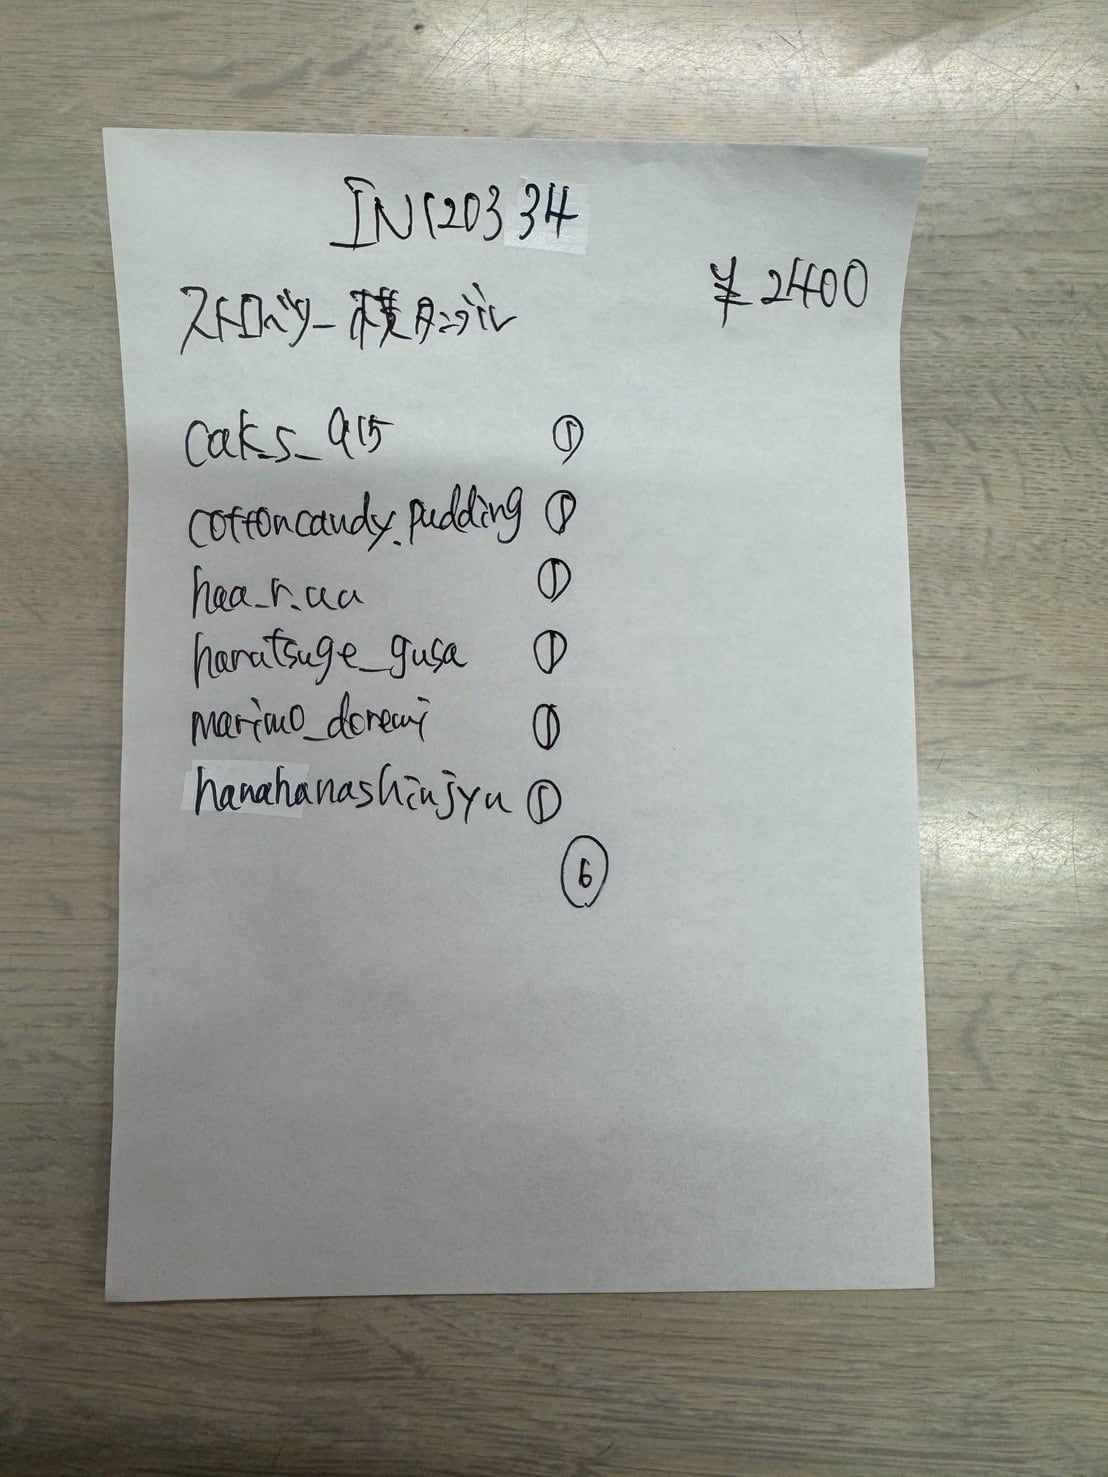 IN120334
¥2400
ストロベリー横タンブル
caks_915 ①
cottoncandy.pudding ①
haa_r.aa ①
haratsuge_gusa ①
marimo_doremi ①
hanahanashinjyu ①
⑥